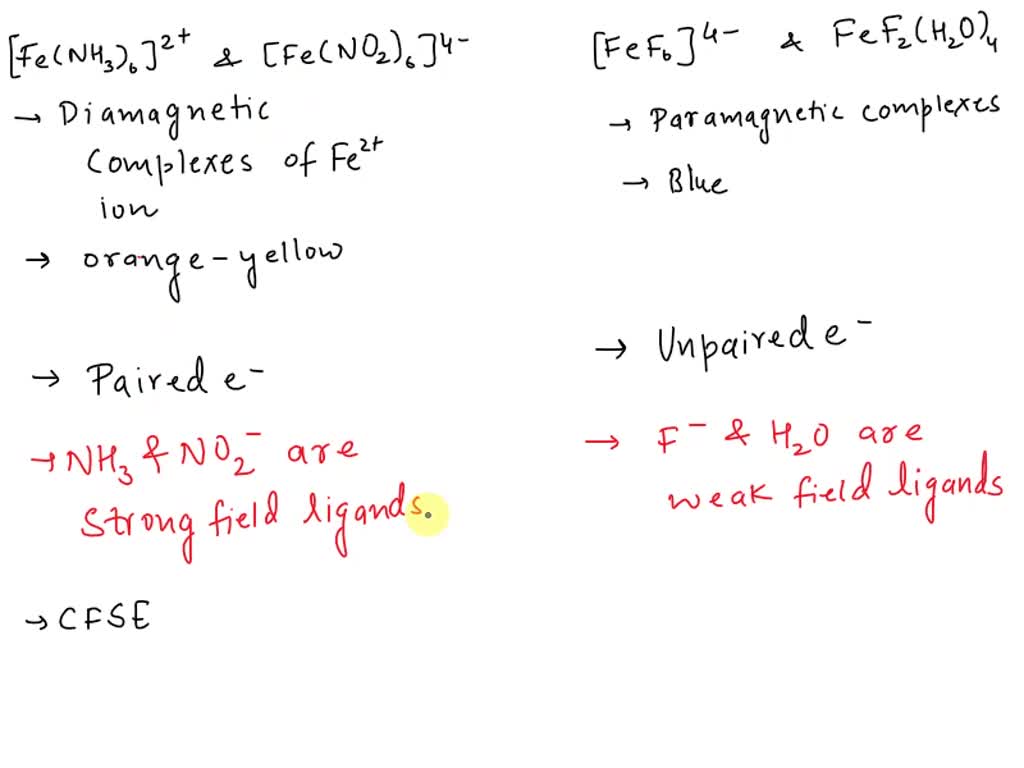 [Fe(NH₃)₆]²⁺ & [Fe(NO₂)₆]⁴⁻
→ Diamagnetic
Complexes of Fe²⁺
ion
→ orange-yellow
→ Paired e⁻
→ NH₃ & NO₂⁻ are
Strong field ligands.
→ CFSE
[FeF₆]⁴⁻ & FeF₂(H₂O)₄
→ Paramagnetic complexes
→ Blue
→ Unpaired e⁻
→ F⁻ & H₂O are
weak field ligands